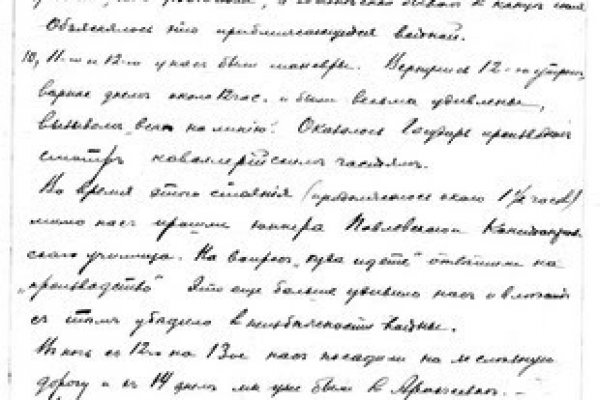 Объяснялось это приближающейся войной.
10, 11-го и 12-го у нас были маневры. Вернулись 12-го утром,
вернее днем около 12 час. и были весьма удивлены,
вызовом „всех на линию“. Оказалось Государь производил
смотр кавалерийским частям.
Во время этого стояния (продолжалось около 1½ часов)
мимо нас прошли юнкера Павловского
ского училища. На вопрос „куда идете“ ответили на
„производство“ Это еще больше удивило нас и
с тем убедило в неизбежности войны.
В ночь с 12го на 13ое нас посадили на железную
дорогу и 14 днем мы уже были в